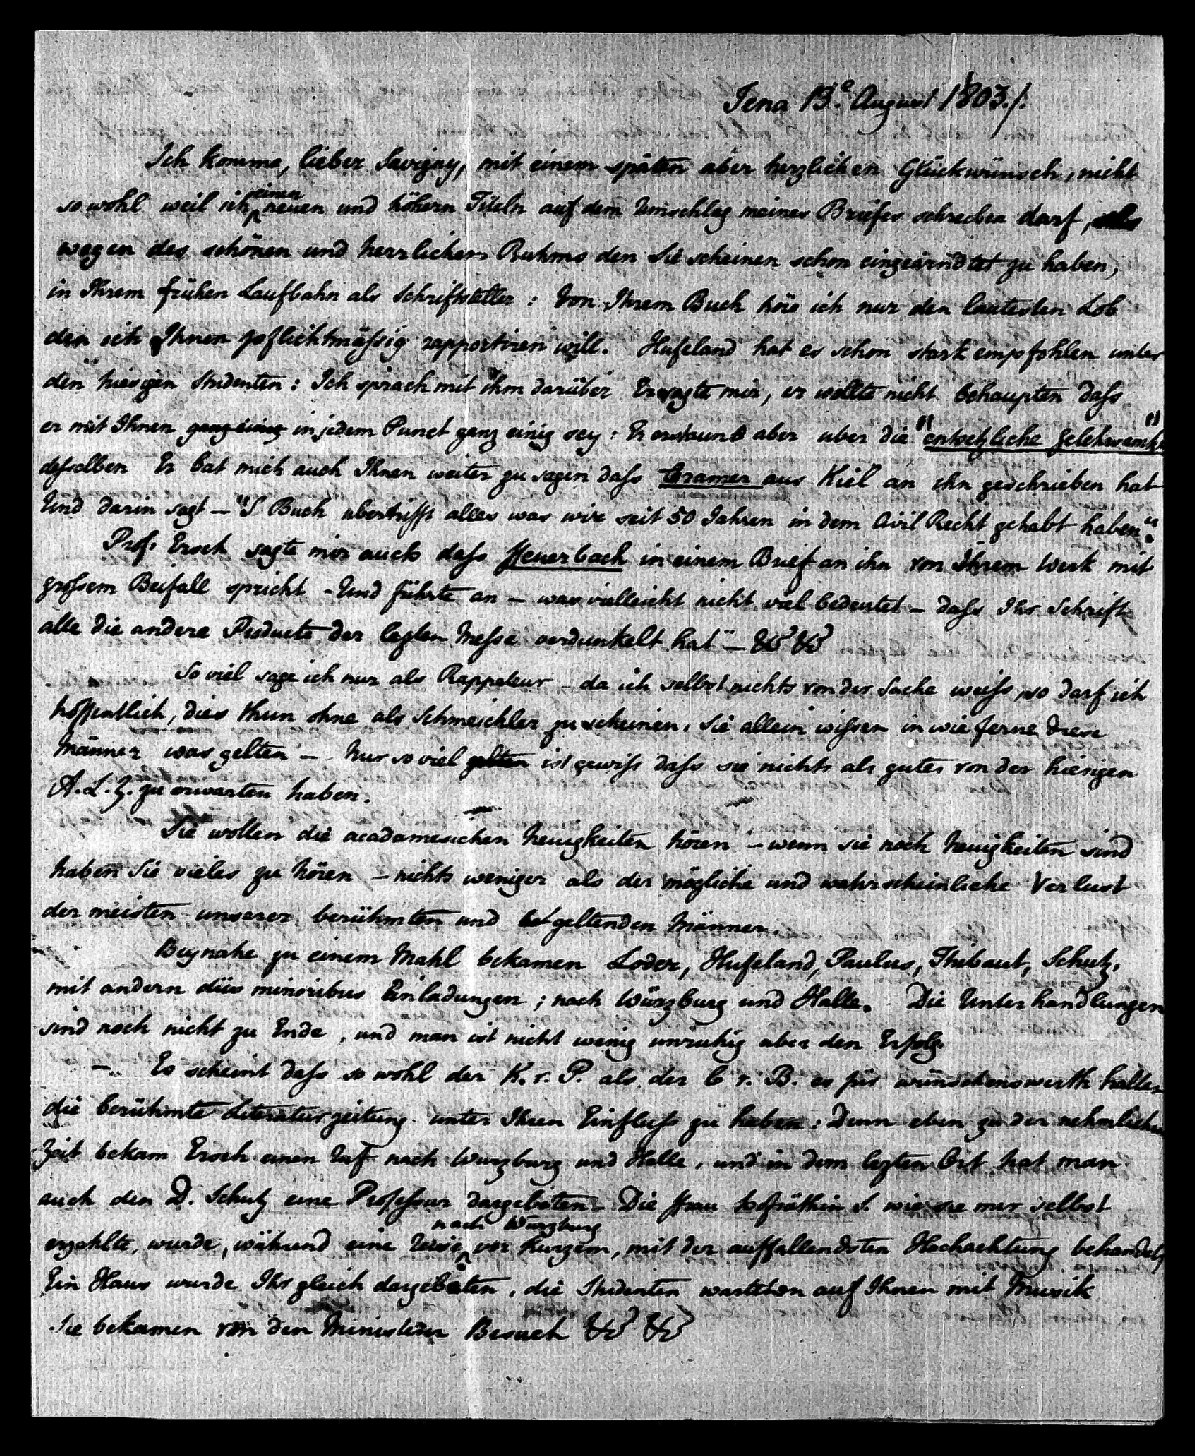 Jena 13.e August 1803./.
Ich komme, lieber Savigny, mit einem späten aber herzlichen Glückwünsch, nicht
so wohl weil ich einen neuen und höhern Titeln auf dem Umschlag meines Briefes schreiben darf, als
wegen des schönen und herrlichen Ruhms den Sie scheinen schon eingeärndtet zu haben,
in Ihrem frühen Laufbahn als Schriftsteller: Von Ihrem Buch höre ich nur den lautesten Lob
den ich Ihnen pflichtmässig rapportiren will. Hufeland hat es schon stark empfohlen unter
den hiesigen Studenten: Ich sprach mit ihm darüber Er sagte mir, er wollte nicht behaupten dass
er mit Ihnen ganz einig in jedem Punct ganz einig sey: Er erstaunt aber uber die "entsetzliche Gelehrsamkt"
desselben Er bat mich auch Ihnen weiter zu sagen dass Cramer aus Kiel an ihn geschrieben hat
Und darin sagt — "S Buch ubertrifft alles was wir seit 50 Jahren in dem Civil Recht gehabt haben."
Prof. Ersch sagte mir auch dass Feuerbach in einem Brief an ihn von Ihrem Werk mit
grossem Beifall spricht - Und führte an — was vielleicht nicht viel bedeutet — dass Ihr Schrift
alle die andere Producte der lezten Messe verdunkelt hat" — &c &c
So viel sage ich nur als Rapporteur — da ich selbst nichts von der Sache weiss, so darf ich
hoffentlich, dies thun ohne als Schmeichler zu scheinen. Sie allein wissen in wie ferne diese
Männer was gelten — Nur so viel gelten ist gewiss dass sie nichts als gutes von der hiesigen
A. L. Z. zu erwarten haben.
Sie wollen die academesichen Neuigkeiten hören — wenn sie noch Neuigkeiten sind
haben Sie vieles zu hören — nichts weniger als der mögliche und wahrscheinliche Verlust
der meisten unserer berühmten und geltenden Männer.
Beynahe zu einem Mahl bekamen Loder, Hufeland, Paulus, Thibaut, Schutz,
mit andern diis minoribus Einladungen; nach Würzburg und Halle. Die Unterhandlungen
sind noch nicht zu Ende, und man ist nicht wenig unruhig uber den Erfolg
—. Es scheint dass so wohl der K. v. P. als der C v. B. es für wünschenswerth halten
die berühmte Literaturzeitung unter Ihren Einfluss zu haben: Denn eben zu der nehmlichen
Zeit bekam Ersch einen Ruf nach Wurzburg und Halle, und in dem lezten Ort hat man
auch den D. Schutz eine Professur dargeboten. Die Frau Hofräthin S. wie sie mir selbst
erzahlte, wurde, während eine Reise nach Würzburg vor Kurzem, mit der auffallendsten Hochachtung behandelt,
Ein Haus wurde Ihr gleich dargeboten, die Studenten warteten auf Ihnen mit Musik
Sie bekamen von den Ministern Besuch &c &c